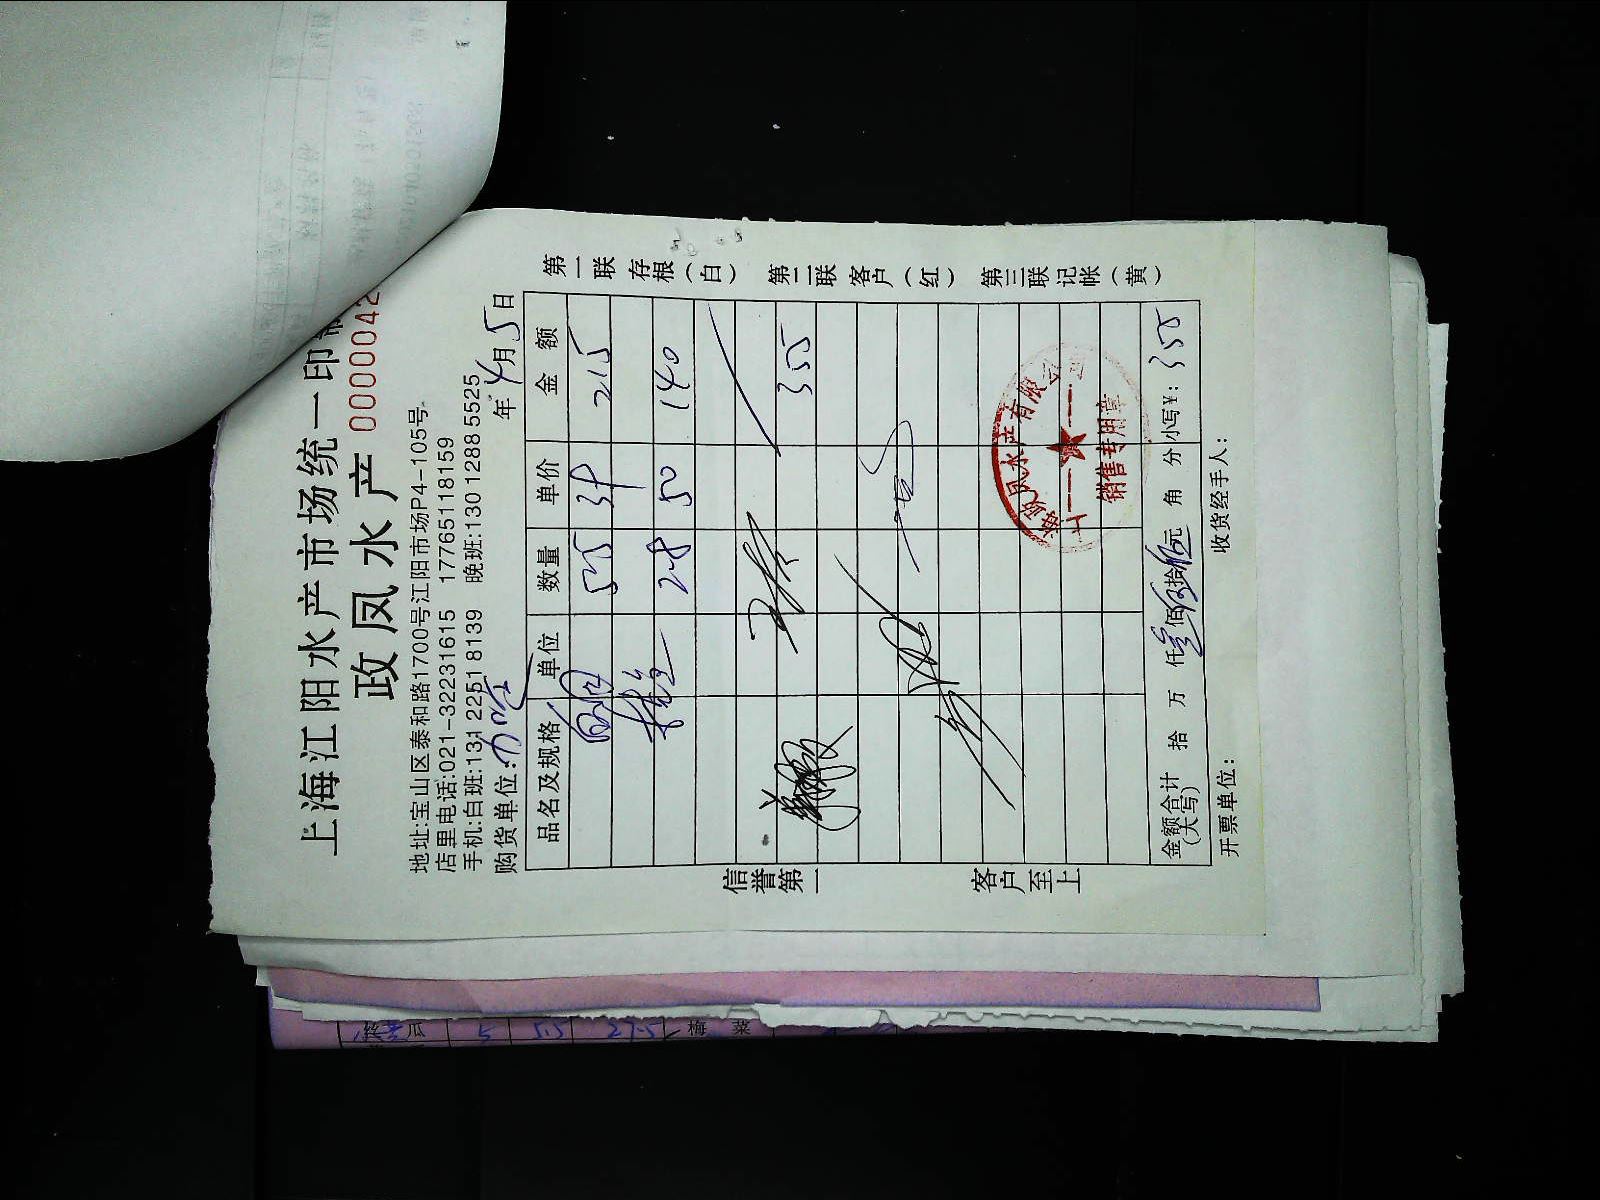 上海江阳水产市场统一印
政凤水产 0000042
地址:宝山区泰和路1700号江阳市场P4-105号
店里电话:021-32231615 17765118159
手机:白班:131 2251 8139 晚班:130 1288 5525
购货单位: 年 4月 5日
品名及规格 单位 数量 单价 金额
5.5 39 215
2.8 50 140
355
金额合计(大写) 拾 万 仟 叁佰 伍拾 伍元 角 分 小写¥: 355
开票单位: 收货经手人:
信誉第一 客户至上
第一联 存根(白) 第二联 客户(红) 第三联 记帐(黄)
上海政凤水产有限公司
销售专用章
丝瓜 5 5.5 27.5 梅菜